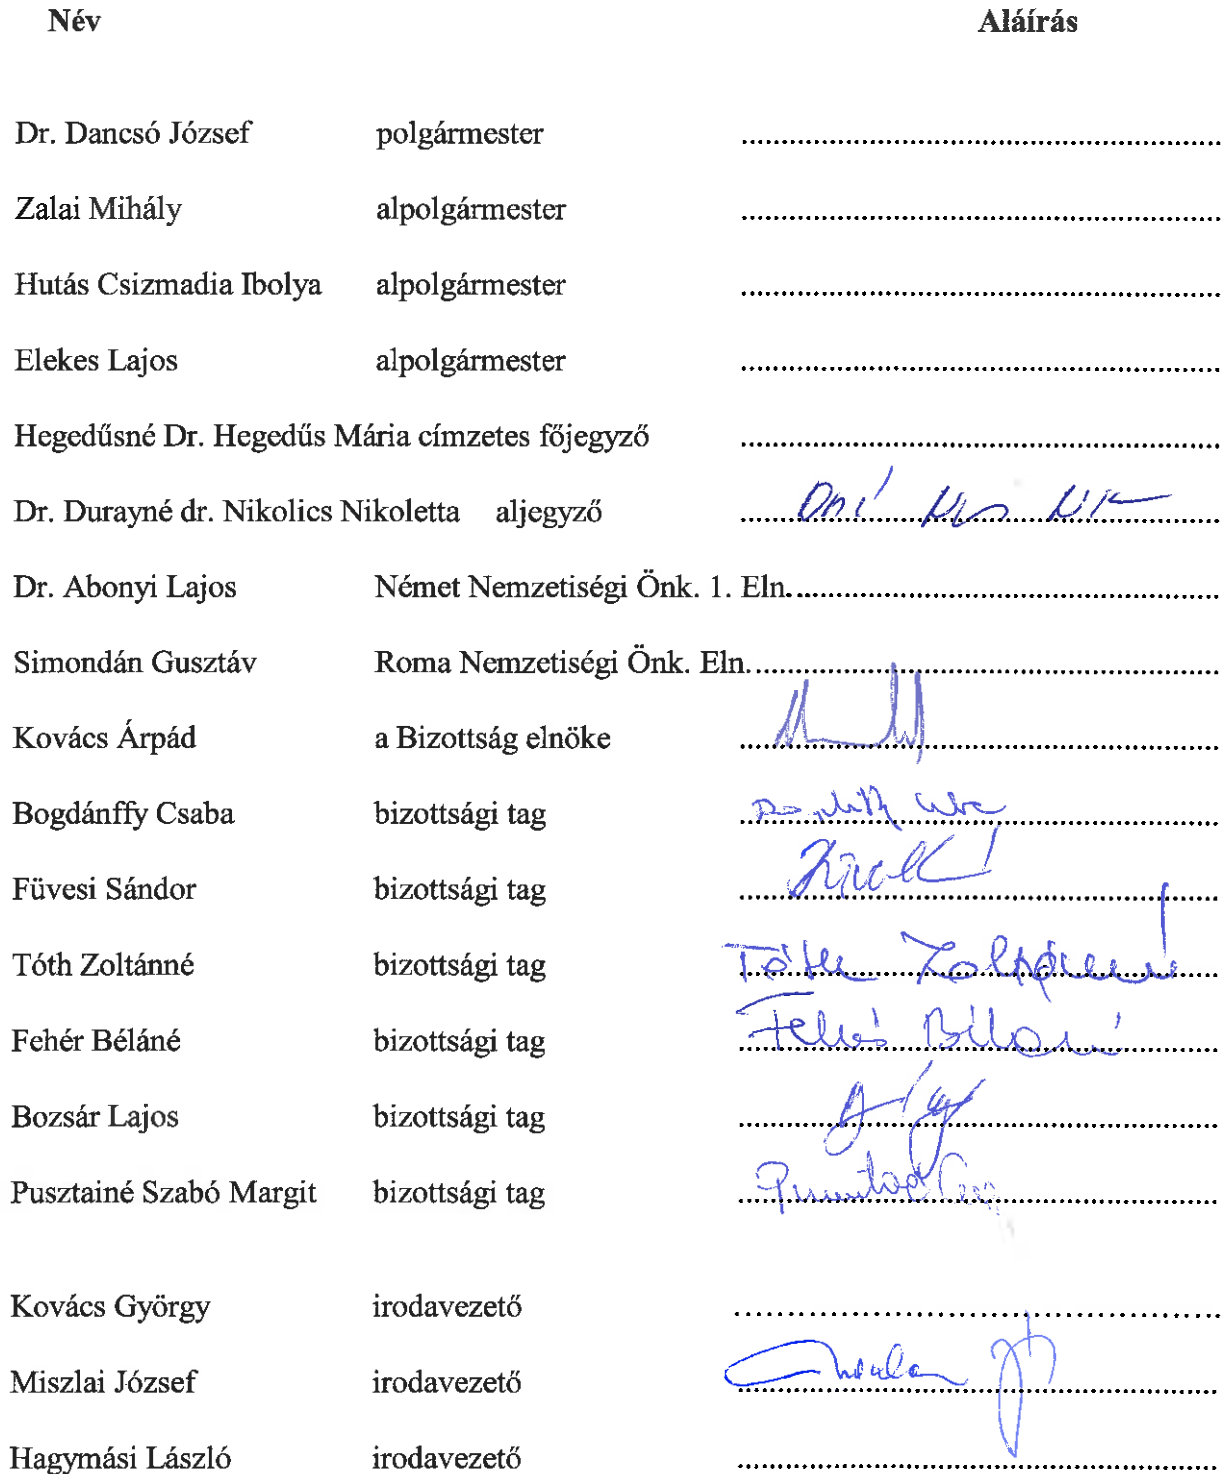 Név Aláírás
Dr. Dancsó József polgármester ................................................
Zalai Mihály alpolgármester ................................................
Hutás Csizmadia Ibolya alpolgármester ................................................
Elekes Lajos alpolgármester ................................................
Hegedűsné Dr. Hegedűs Mária címzetes főjegyző ................................................
Dr. Durayné dr. Nikolics Nikoletta aljegyző ................................................
Dr. Abonyi Lajos Német Nemzetiségi Önk. 1. Eln. ................................................
Simondán Gusztáv Roma Nemzetiségi Önk. Eln. ................................................
Kovács Árpád a Bizottság elnöke ................................................
Bogdánffy Csaba bizottsági tag ................................................
Füvesi Sándor bizottsági tag ................................................
Tóth Zoltánné bizottsági tag Tóth Zoltánné
Fehér Béláné bizottsági tag Fehér Béláné
Bozsár Lajos bizottsági tag ................................................
Pusztainé Szabó Margit bizottsági tag ................................................
Kovács György irodavezető ................................................
Miszlai József irodavezető ................................................
Hagymási László irodavezető ................................................